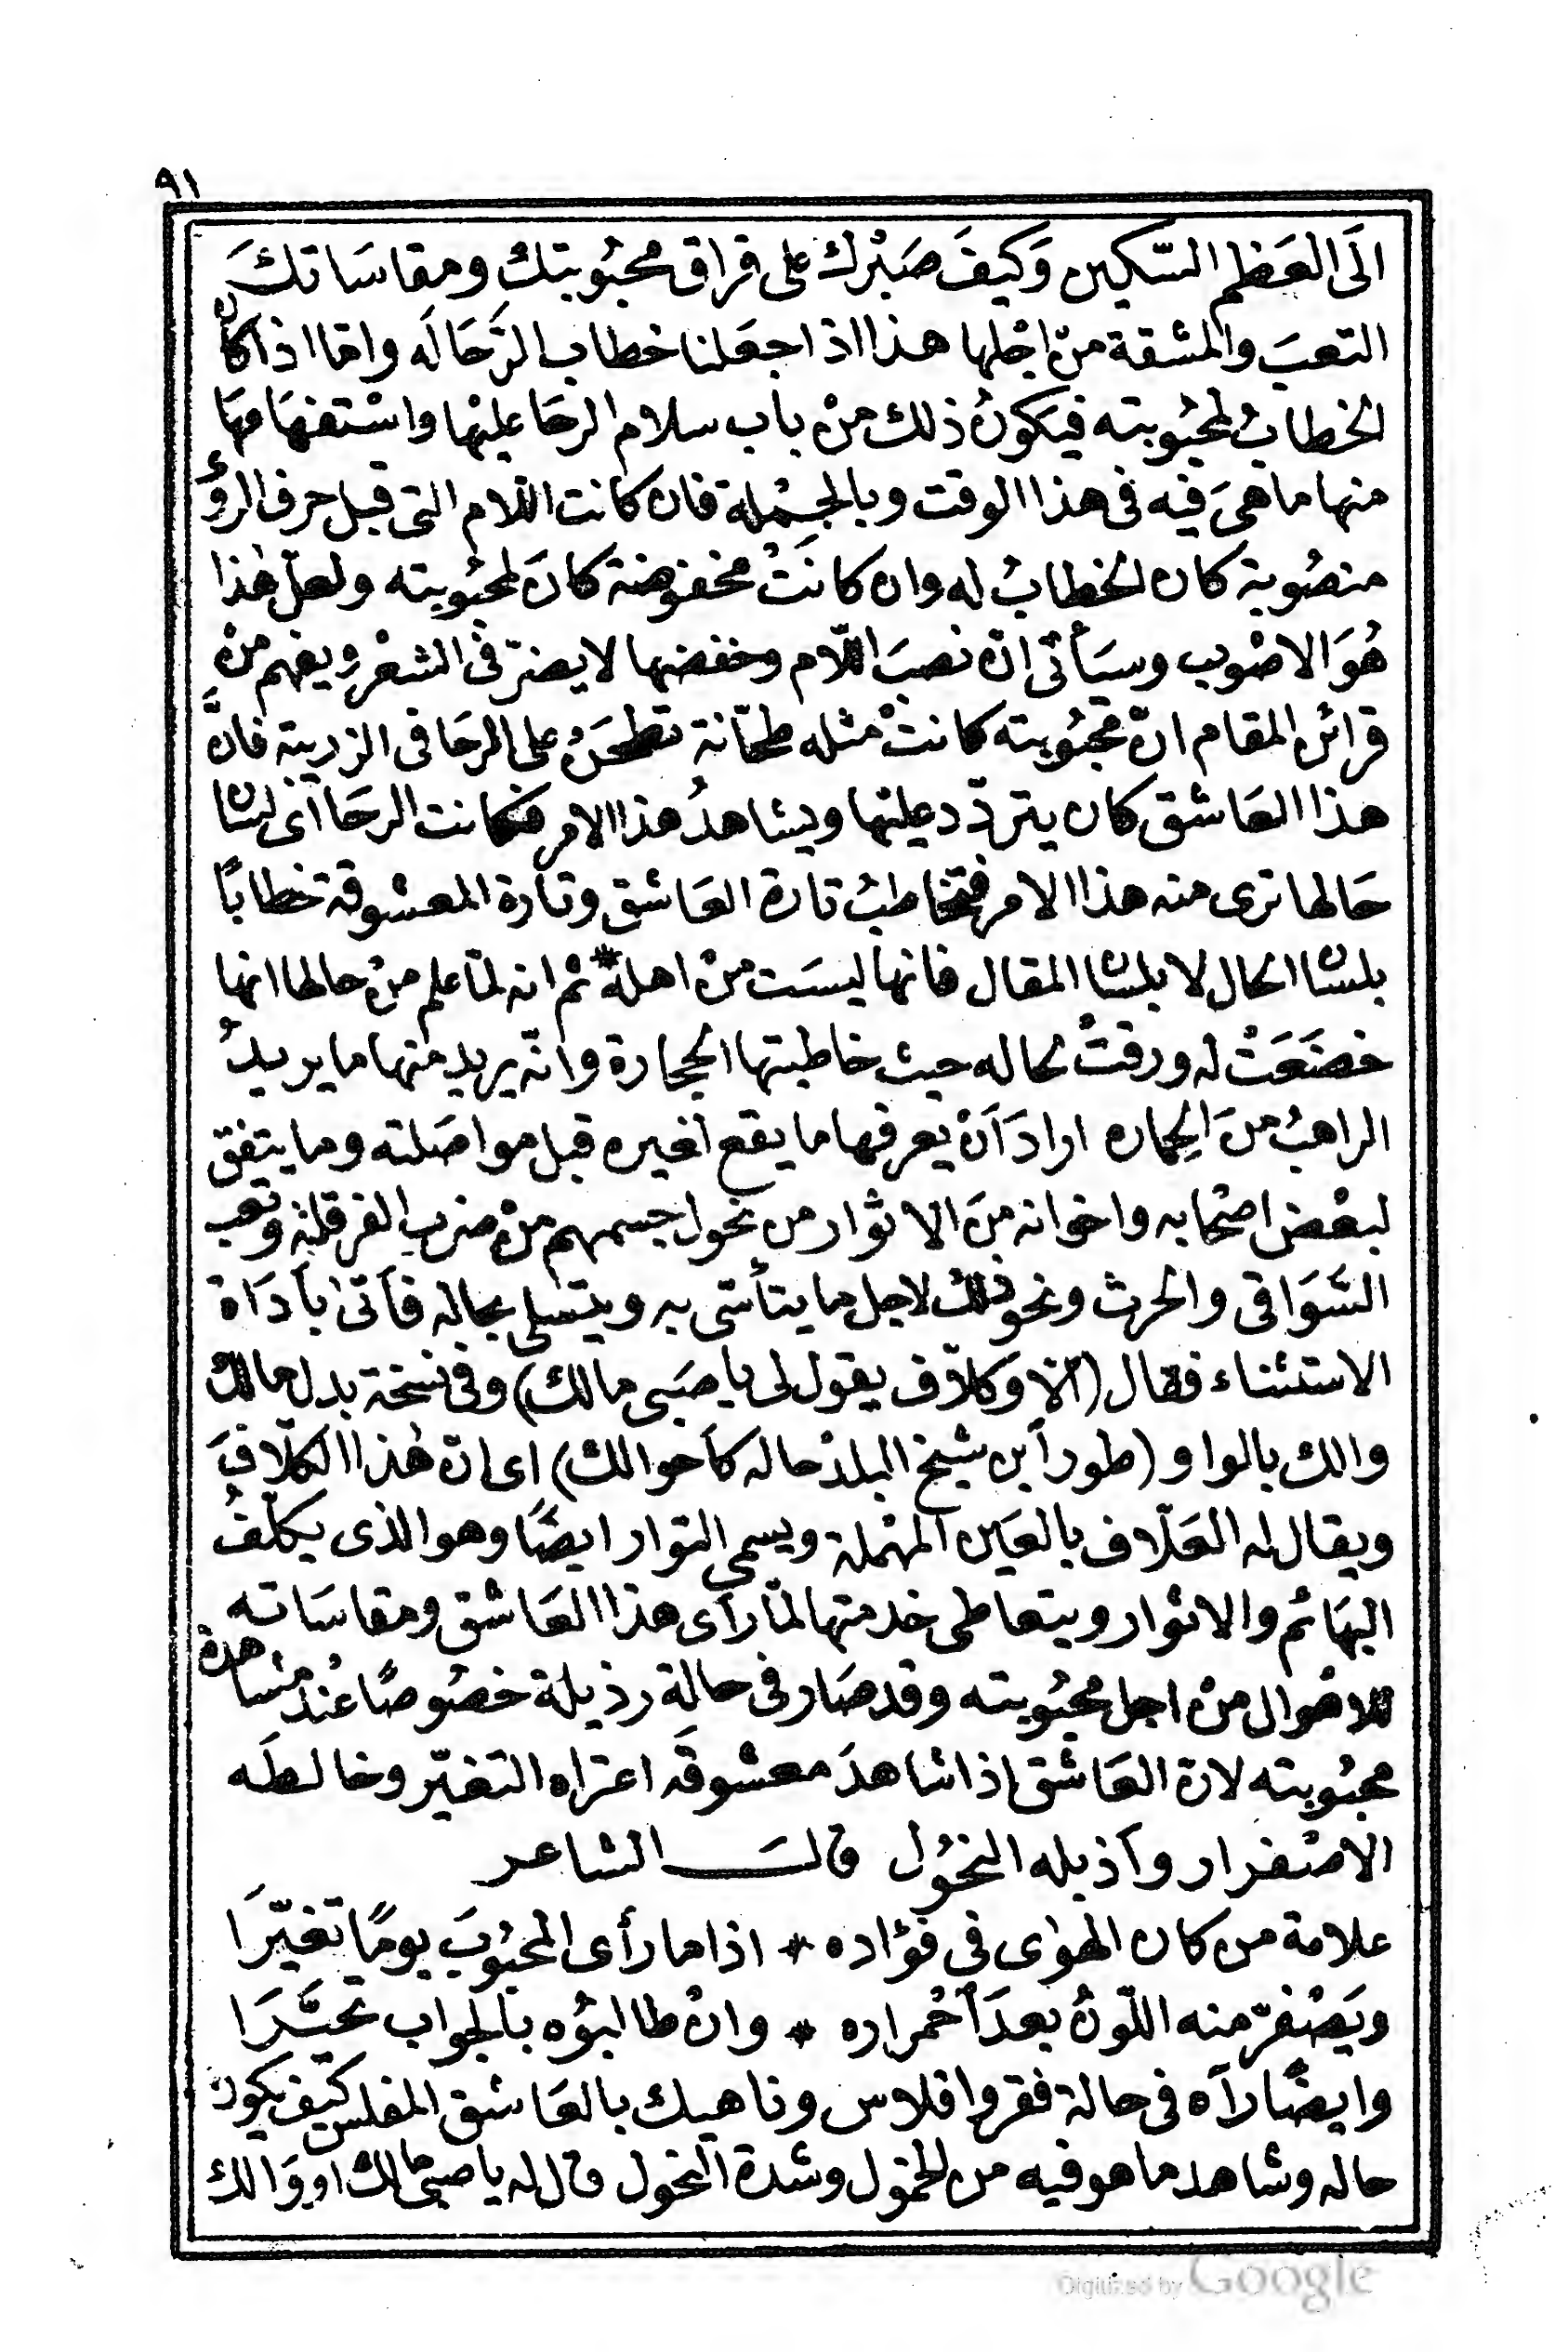 ٩١
الَى العَظم السّكين وَكيفَ صَبْرك على فراق محبُوبتك ومقاسَاتكَ
التعبَ والمشقة منْ اجْلها هذا اذا جعَلنا خطاب الرَّحَا لَه وامّا اذا كان
الخطابُ لمحبُوبته فيَكونُ ذلك منْ باب سلام الرحَا عليْها واسْتفهَامهَا
منها ما هىَ فيه فى هذا الوقت وبالجمْلة فان كانت اللام التى قبل حرف الروُّ
منصُوبة كان الخطابُ له وان كانَتْ مخفوضة كانَ لمحبُوبته ولعلّ هٰذا
هُوَ الاصْوب وسيَأتى انّ نصبَ اللّام وخفضها لا يضرّ فى الشعْرِ ويفهم منْ
قرائن المقام انّ محبُوبته كانتْ مثله طحّانة تطحَنُ على الرحَا فى الزريبة فانَّ
هذا العَاشق كان يتردّد عليْها ويشاهدُ هذا الامر فكانت الرحَا اى لسَان
حَالها ترى منه هذا الامر فتخاطبُ تارة العَاشق وتارة المعشوقة خطابًا
بلسَان الحال لا بلسَان المقال فانها ليسَت منْ اهله * ثم انه لمّا علم منْ حالها انها
خضَعَتْ له ورقتْ لحاله حيث خاطبتها الحجارة وانّه يريد منها ما يريدُ
الراهبُ منَ الحماره ارادَ اَنْ يعرفها ما يقع لغيره قبل مواصَلته وما يتفق
لبعْض اصْحابه واخوانه منَ الاثوار من نحول جسمهم منْ ضرب الفرقلة وتعب
السَّوَاقى والحرث ونحو ذلك لاجل ما يتأسّى به ويتسلى بحاله فَأتى بأدَاة
الاستثناء فقال (الّا وكلّاف يقول لى يا صَبى مالك) وفى نسخة بدل مالك
والك بالواو (طور اَبن شيخ البلدْ حاله كاَحوالك) اى انّ هٰذا الكلّاف
ويقال له العَلّاف بالعَين المهْملة ويسمى التوار ايضًا وهو الذى يكلّفُ
البهَائم والاثوار ويتعاطى خدمتها لمّا رَاى هذا العَاشق ومقاسَاته
للاهْوال منْ اجل محبُوبته وقد صَار فى حالة رذيلة خصُوصًا عنْد مشاهدة
محبُوبته لانّ العَاشق اذا شاهدَ معشوقَه اعتراه التغيّر وخالطَه
الاصْفرار واَذبله النحُول قالـــ الشاعر
علامة من كان الهوٰى فى فؤاده * اذا ما رأى المحبُوبَ يومًا تغيّرَا
ويَصْفرّ منه اللّونُ بعدَ اَحْمراره * وانْ طالبُوه بالجواب تحيَّرَا
وايضًا رآه فى حالة فقر وافلاس وناهيك بالعَاشق المفلس كيف يكون
حاله وشاهد ما هو فيه من الخمُول وشدة النحول قال له يا صبى مالك او وَالك